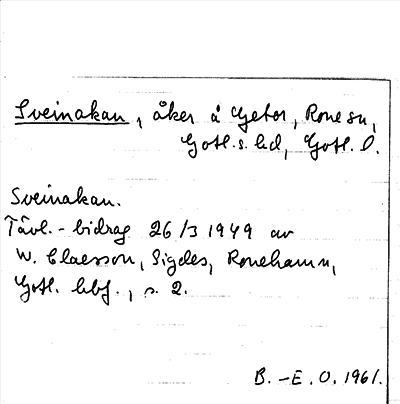 Sveinakan, åker å Getor, Rone sn,
Gotl. s. hd, Gotl. l.
Sveinakan.
Tävl.-bidrag 26/3 1949 av
W. Claesson, Sigdes, Ronehamn,
Gotl. hbf., s. 2.
B.-E. O. 1961.